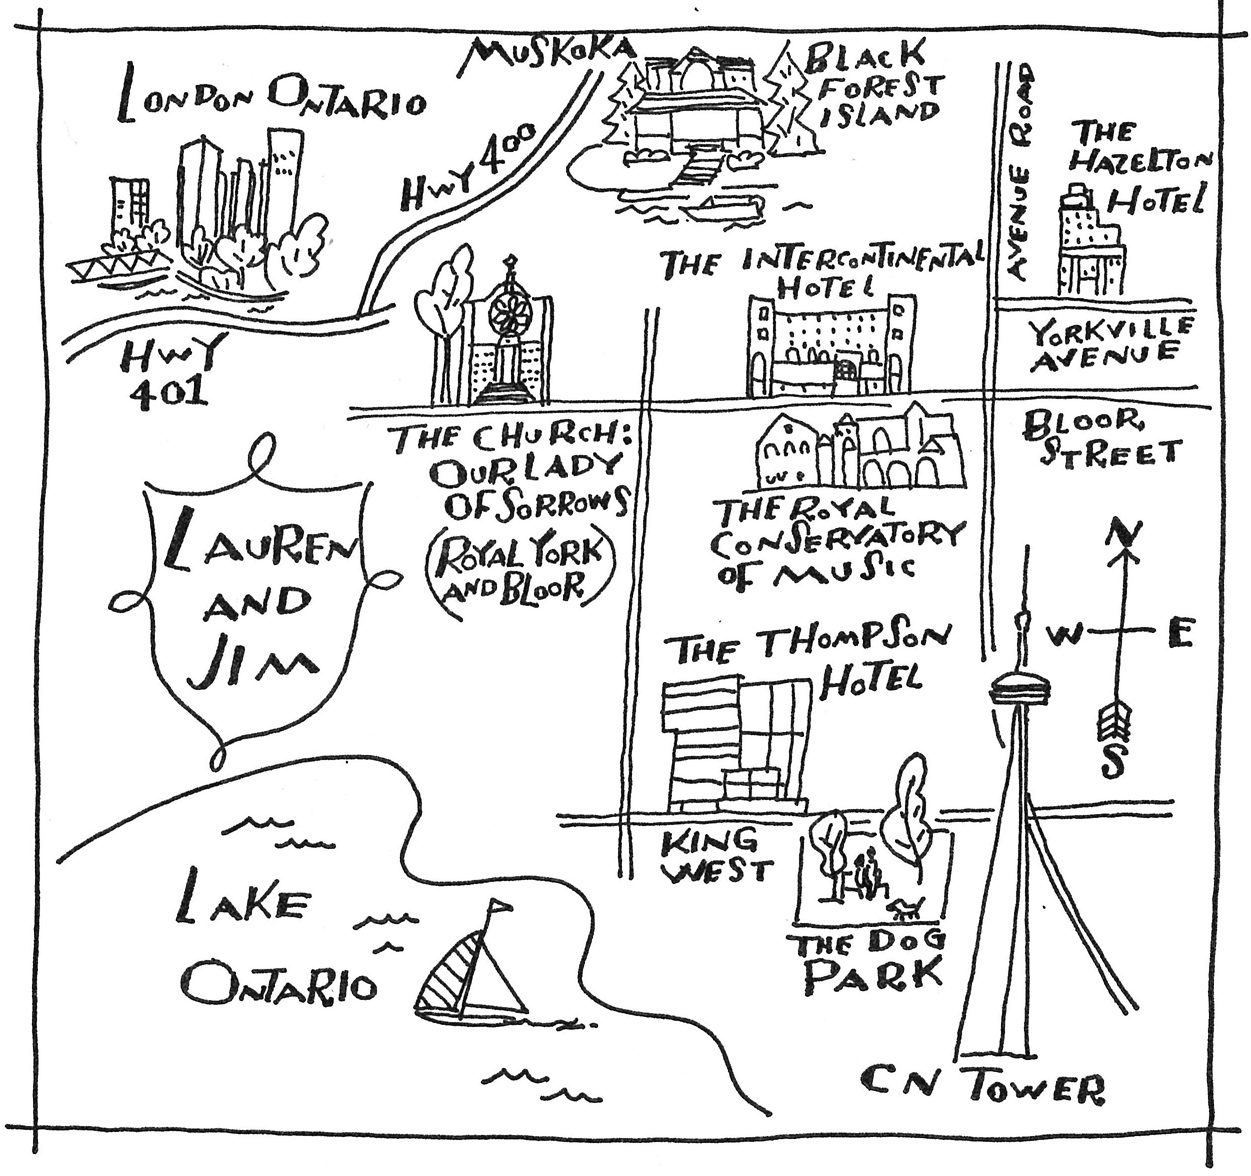 MUSKOKA
BLACK
FOREST
ISLAND
LONDON ONTARIO
HWY 400
AVENUE ROAD
THE
HAZELTON
HOTEL
THE INTERCONTINENTAL
HOTEL
HWY
401
YORKVILLE
AVENUE
THE CHURCH:
OUR LADY
OF SORROWS
(ROYAL YORK
AND BLOOR)
BLOOR
STREET
THE ROYAL
CONSERVATORY
OF MUSIC
LAUREN
AND
JIM
N
W E
S
THE THOMPSON
HOTEL
KING
WEST
LAKE
ONTARIO
THE DOG
PARK
CN TOWER